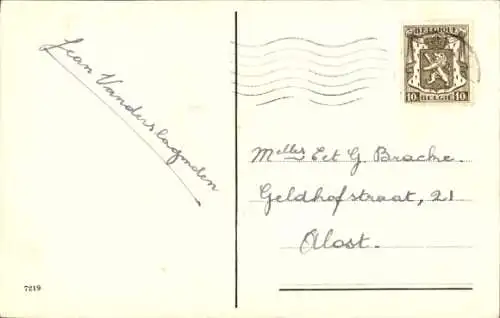 Jean Vanderslagmolen
BELGIQUE
10 BELGIE 10
Melles E et G. Bracke.
Geldhofstraat, 21
Alost.
7219